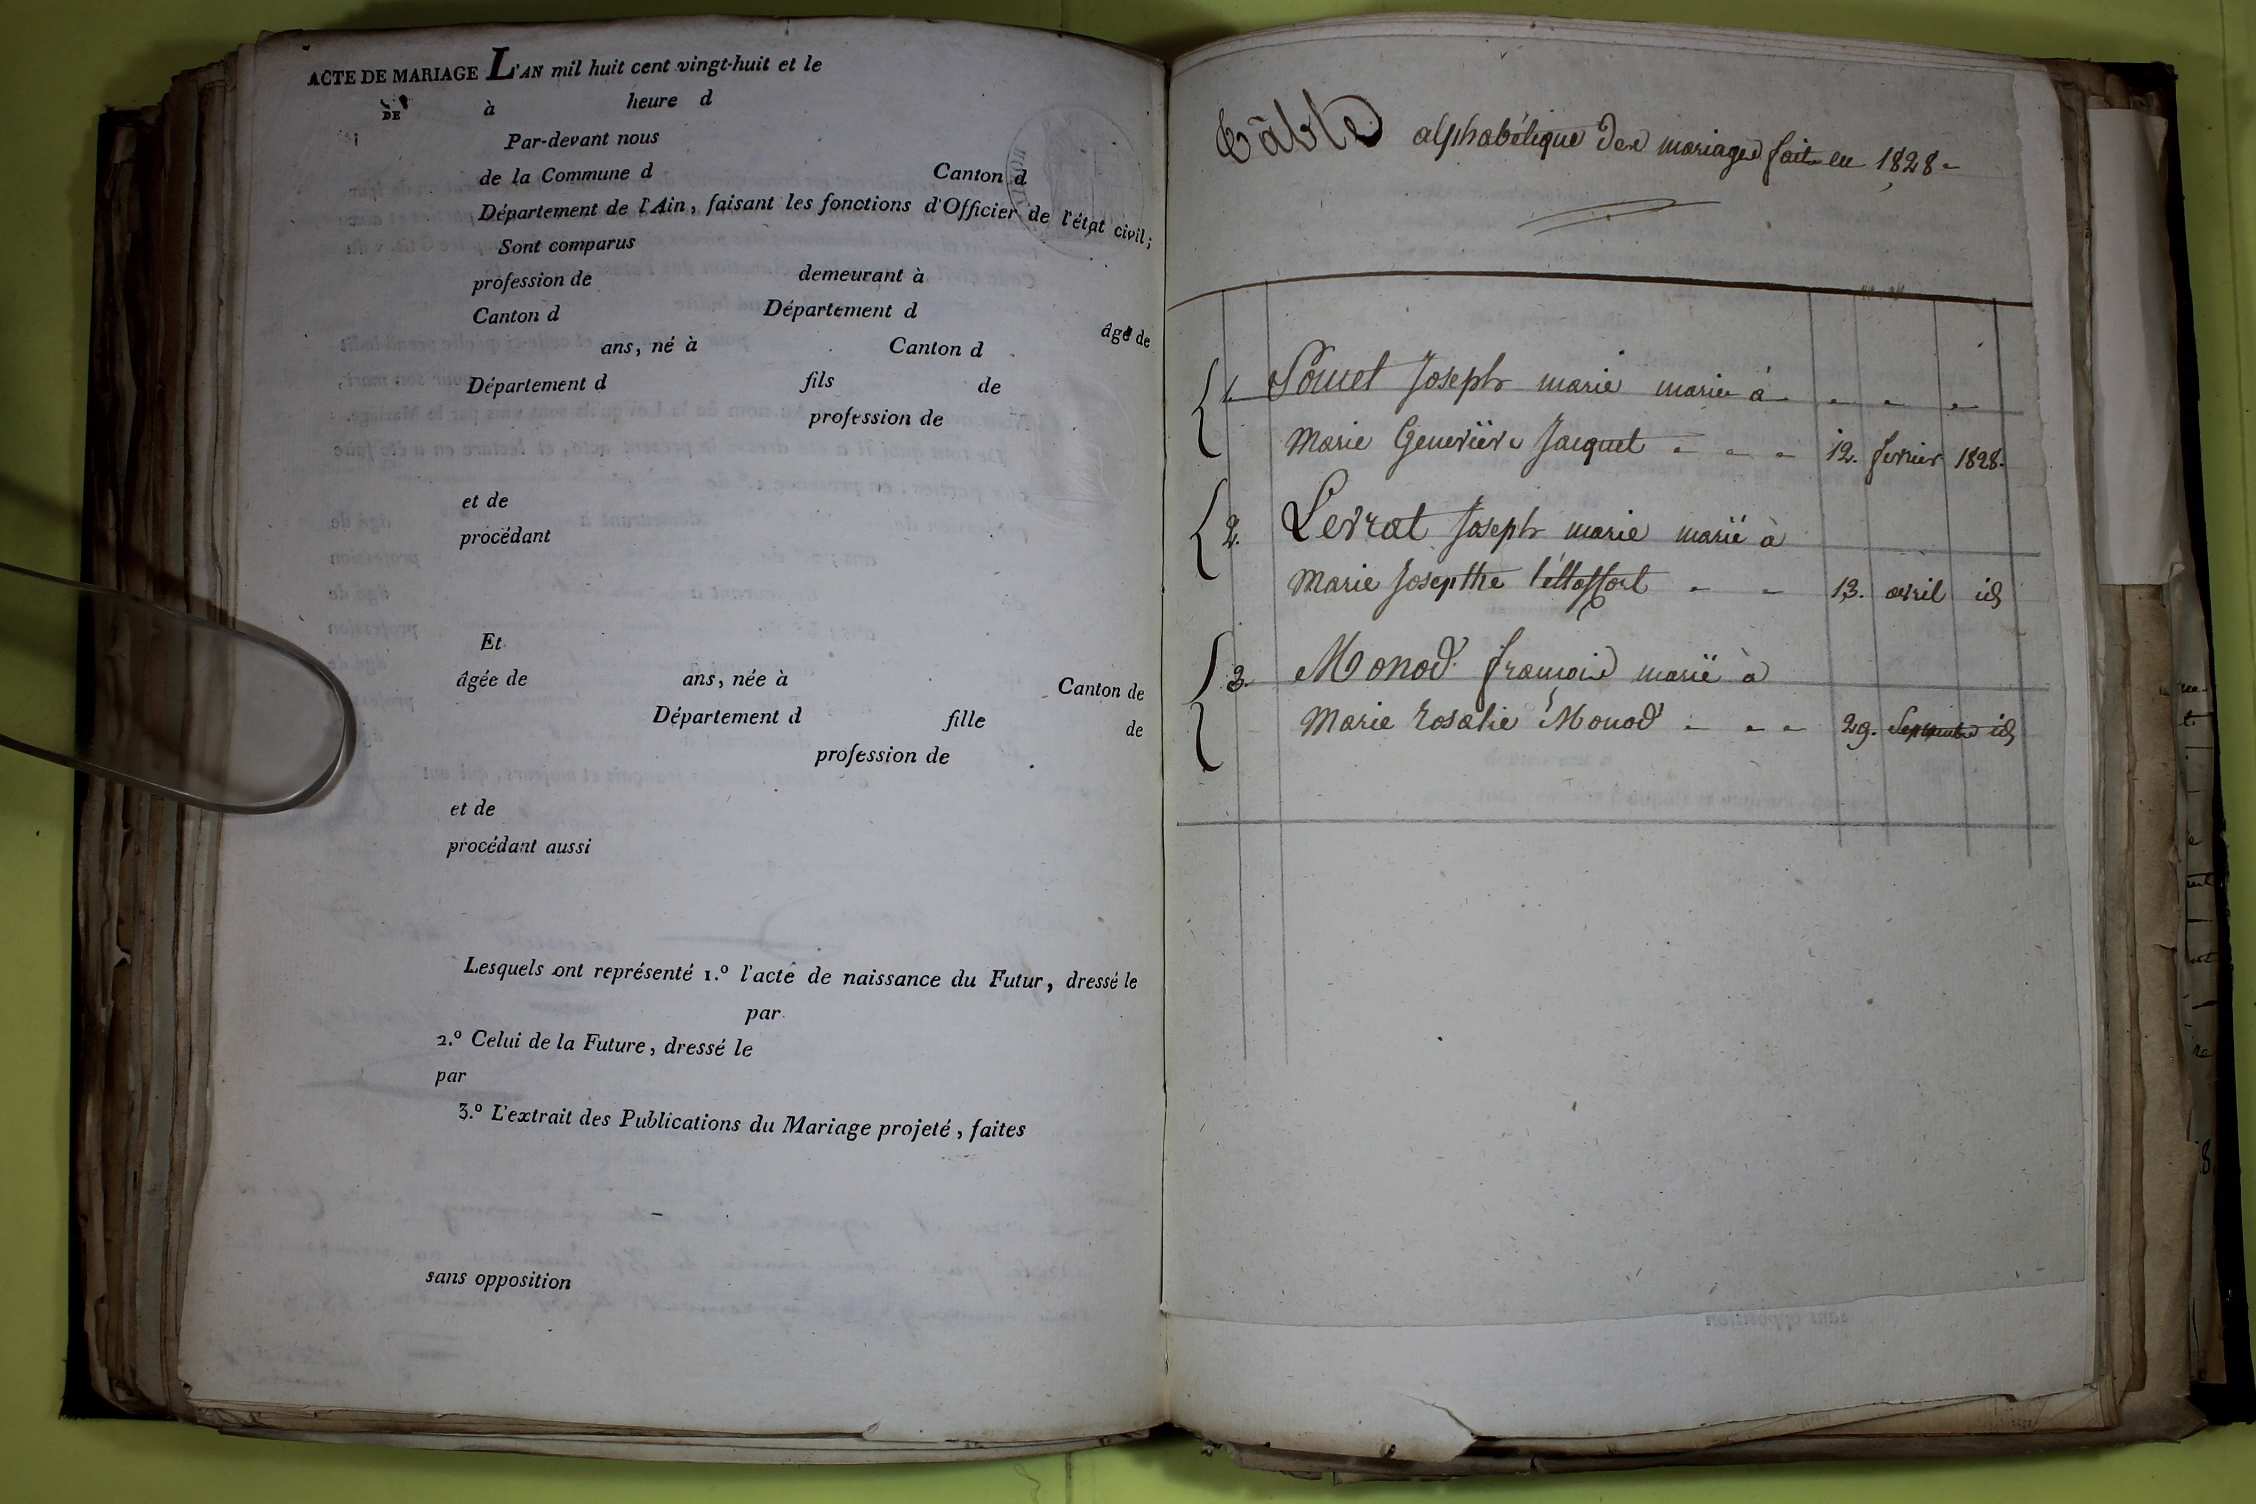 ACTE DE MARIAGE L'AN mil huit cent vingt-huit et le
DE à heure d
Par-devant nous
de la Commune d Canton d
Département de l'Ain, faisant les fonctions d'Officier de l'état civil;
Sont comparus
profession de demeurant à
Canton d Département d âgé de
ans, né à Canton d
Département d fils de
profession de
et de
procédant
Et
âgée de ans, née à Canton de
Département d fille de
profession de
et de
procédant aussi
Lesquels ont représenté 1.º l'acte de naissance du Futur, dressé le
par
2.º Celui de la Future, dressé le
par
3.º L'extrait des Publications du Mariage projeté, faites
sans opposition
Tâble alphabétique des mariages faits en 1828
1. Joseph marie marié à
Marie Geneviève Jacquet 12. fevrier 1828.
2. Levrat Joseph marie marié à
Marie Josepthe 13. avril id
3. Monod françois marié à
Marie rosalie Monod 29. Septembre id